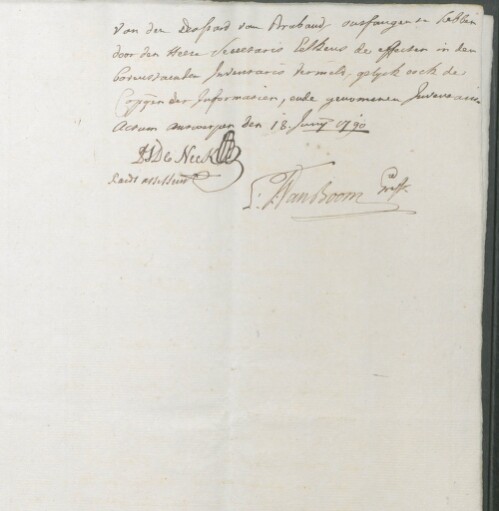 Van den Drossard van Braband ontfangen te hebben
door den Heere Secretaris de effecten in den
bovenstaenden Inventaris vermelt, gelyck oock de
Copyen der Informatien, ende genomenen Inventaris
Actum antwerpen den 18. Juny 1790
De Neck
L: Van Boom Greff.